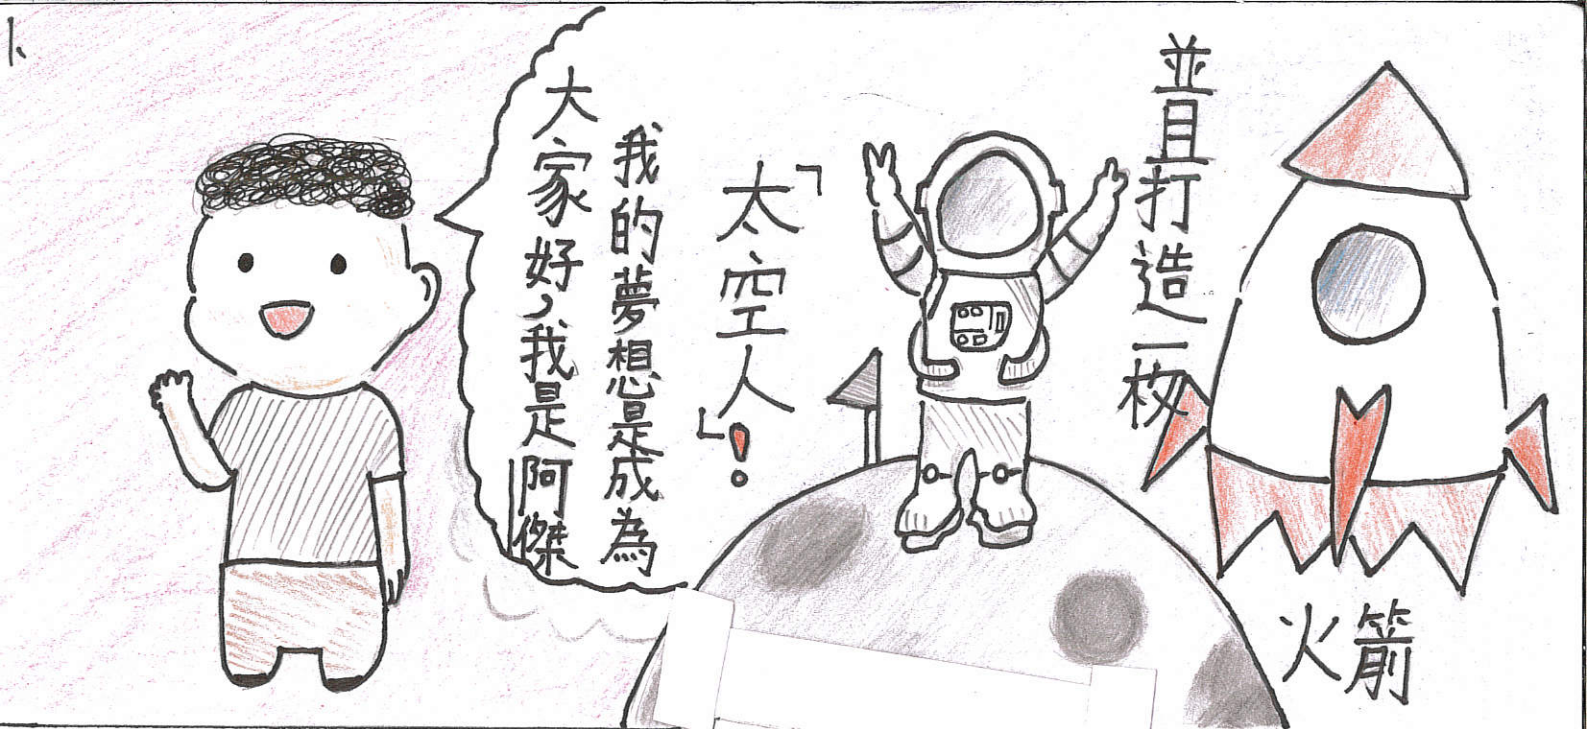 1、
大家好，我是阿傑
我的夢想是成為
「太空人」！
並且打造一枚
火箭